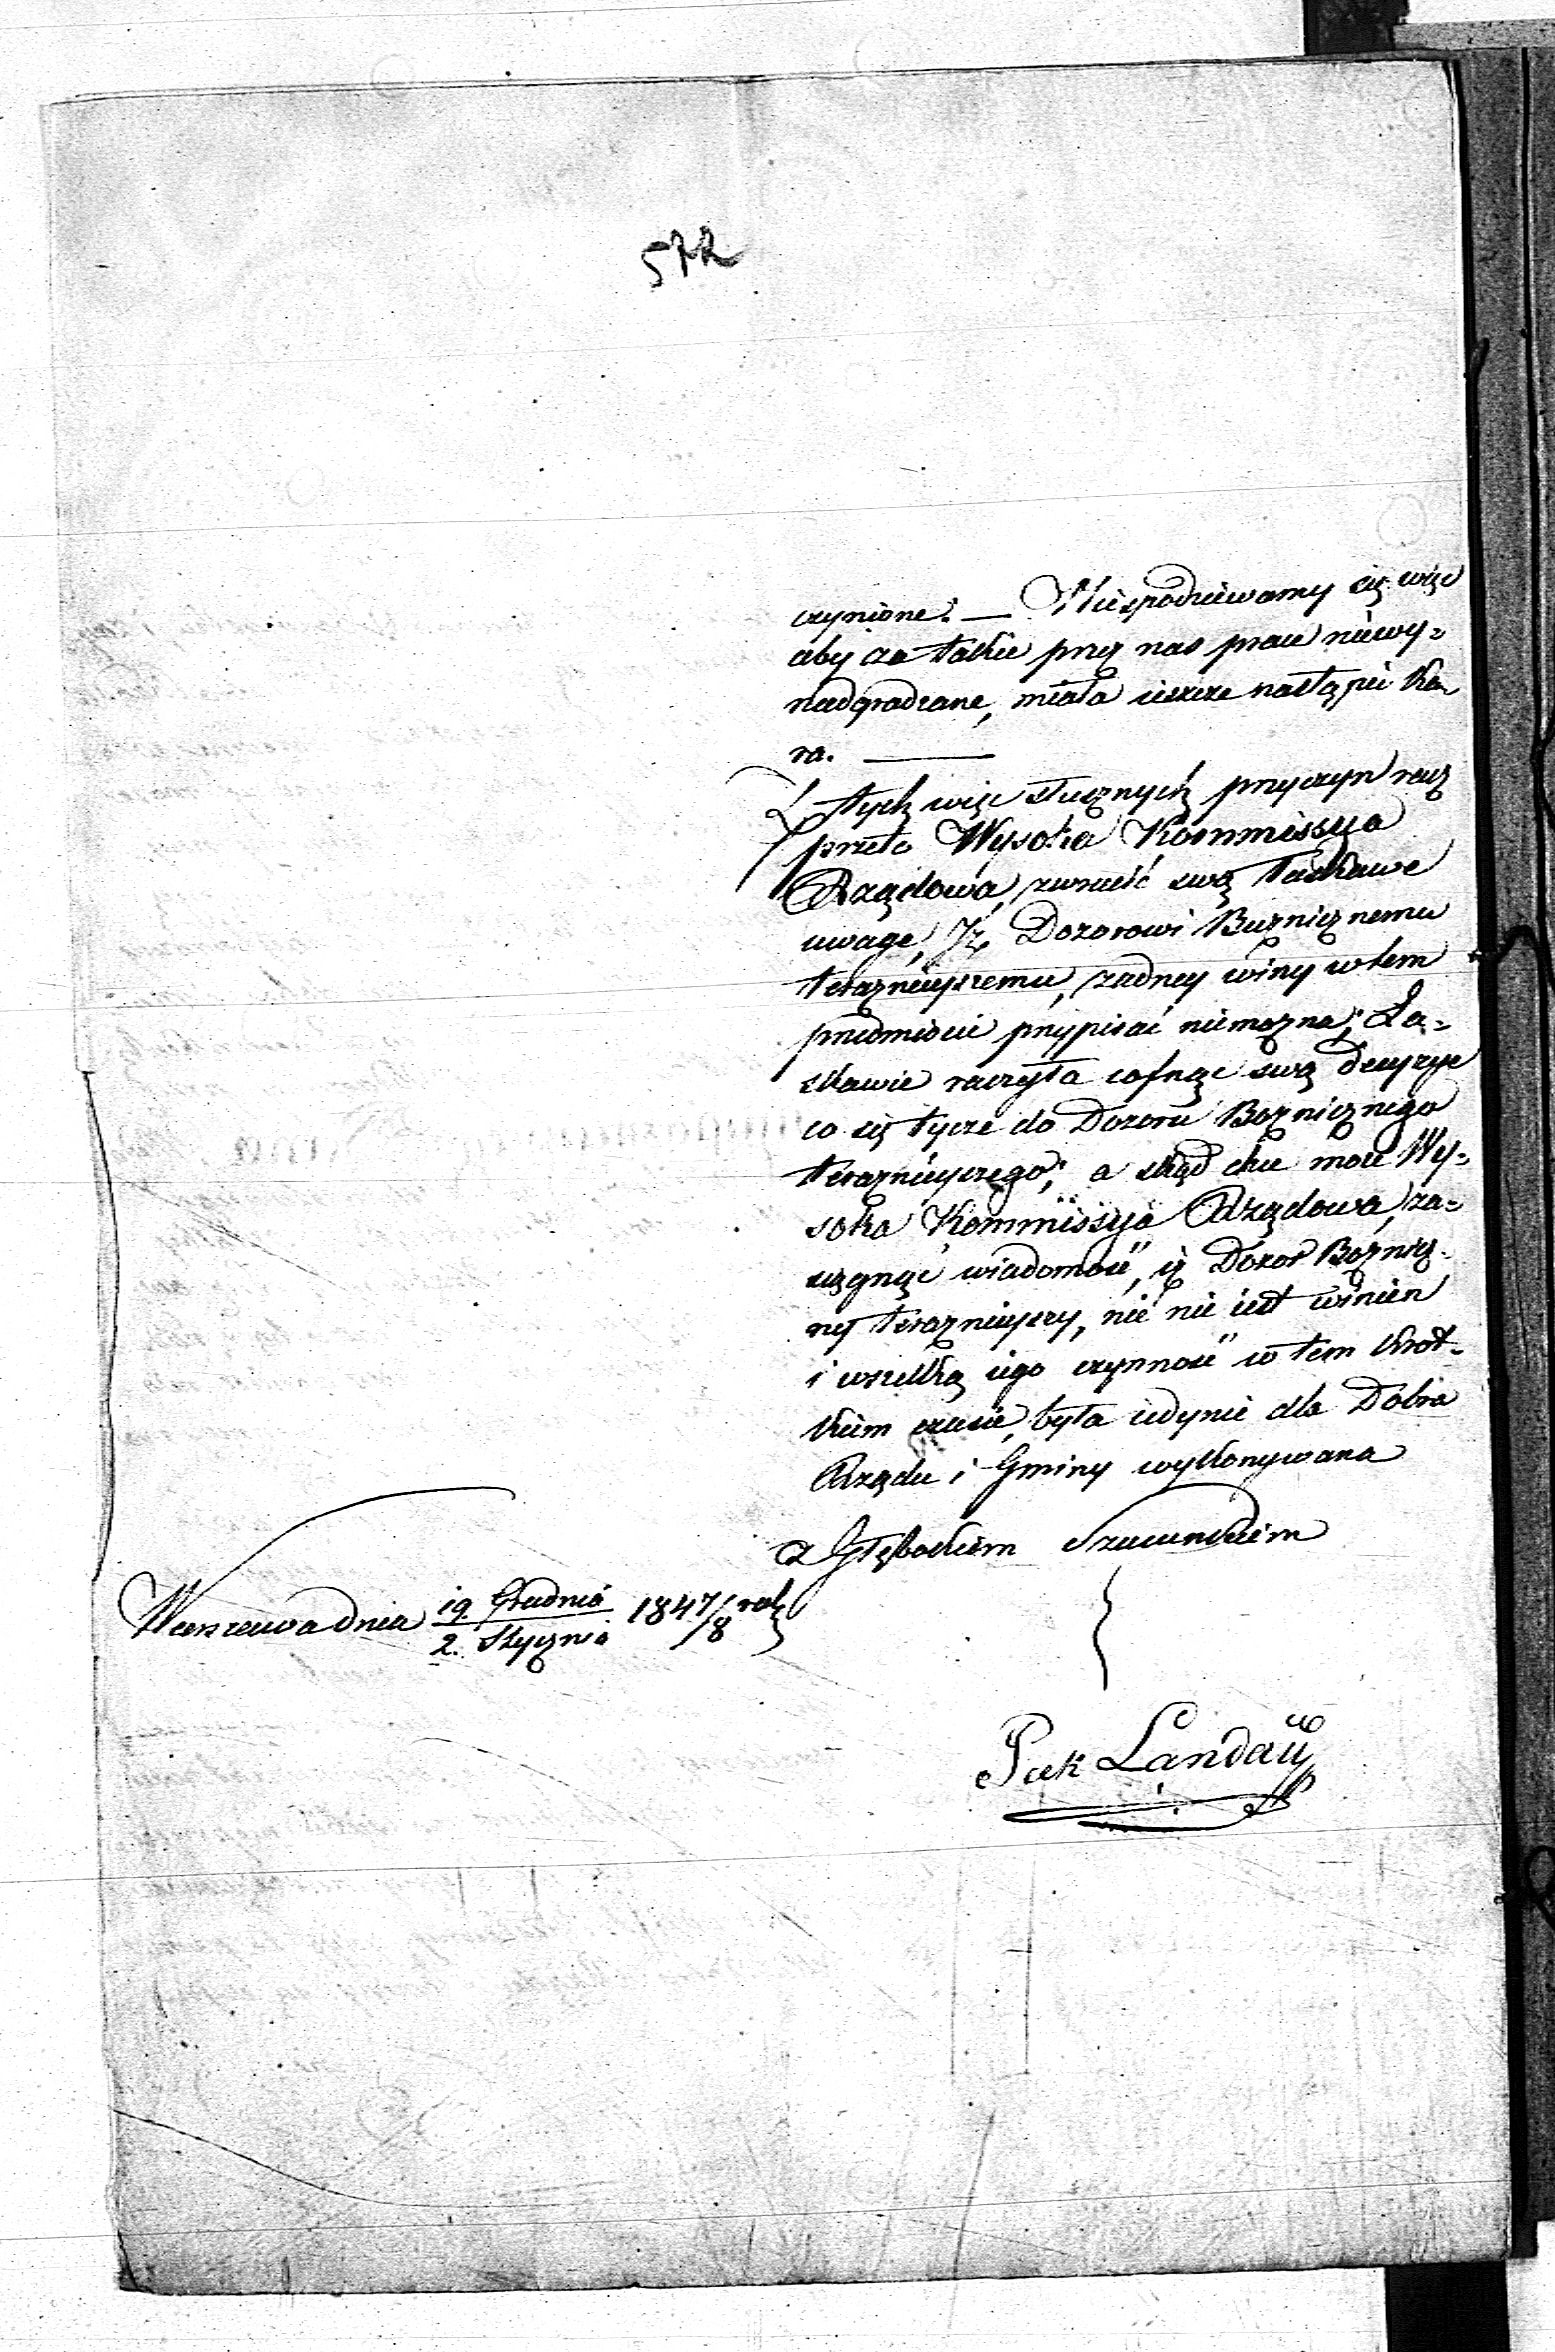 572
czynione. — Niespodziewamy się więc
aby za takie przz nas prace niewy-
nadgradzane, miała ieszcze nastąpić Ka-
ra. —
Z tych więc słusznych przyczyn racz
przeto Wysoka Kommissya
Rządowa, zwrucić swą łaskawe
uwagę, Iż Dozorowi Buzniznemu
terazneyszemu, zadney winy w tem
przedmiocie przypisać niemozna; Ła-
skawie raczyła cofnąc swą decyzye
co się tycze do Dozoru Boznicznego
terazneyszego; a skąd chce może Wy-
soka Kommissya Rządowa, za-
sięgnąć wiadomość, iz Dozor Boznicz-
ny terazneyszy, nic nie iest winien
i wszelką iego czynność w tem krot-
kiem czasie, była iedynie dla Dobra
Rządu i Gminy wykonywana
z Głębokiem Szacunkiem
Warszawa dnia 19. Grudnia / 2. Stycznia 1847/8 rok
Landau